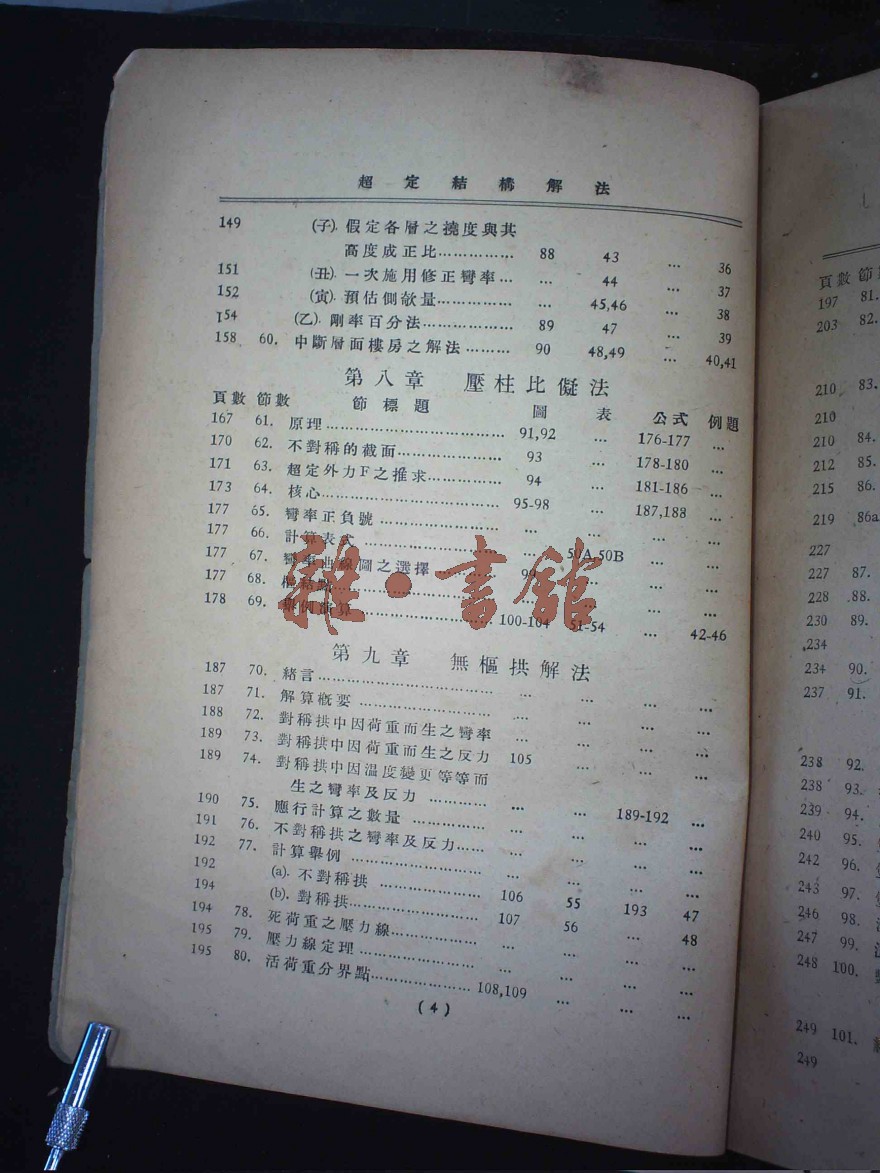 超定結構解法
149 (子). 假定各層之撓度與其
高度成正比 …………… 88 43 … 36
151 (丑). 一次施用修正彎率 … … 44 … 37
152 (寅). 預估側欹量 …………… … 45,46 … 38
154 (乙). 剛率百分法 ……………… 89 47 … 39
158 60. 中斷層面樓房之解法 ……… 90 48,49 … 40,41
第八章 壓柱比儗法
頁數 節數 節標題 圖 表 公式 例題
167 61. 原理 ……………………………… 91,92 … 176-177 …
170 62. 不對稱的截面 ………………… 93 … 178-180 …
171 63. 超定外力F之推求 …………… 94 … 181-186 …
173 64. 核心 ……………………………… 95-98 … 187,188 …
177 65. 彎率正負號 …………………… … … … …
177 66. 計算表式 ……………………… … 50A,50B … …
177 67. 彎率曲線圖之選擇 ………… … … …
177 68. … … …
178 69. 舉例演算 ……………………… 100-104 51-54 … 42-46
第九章 無樞拱解法
187 70. 緒言 ……………………………… … … … …
187 71. 解算概要 ……………………… … … … …
188 72. 對稱拱中因荷重而生之彎率 … … … …
189 73. 對稱拱中因荷重而生之反力 105 … … …
189 74. 對稱拱中因温度變更等等而
生之彎率及反力 ………… … … 189-192 …
190 75. 應行計算之數量 …………… … … … …
191 76. 不對稱拱之彎率及反力 …… … … … …
192 77. 計算舉例 ……………………… … … … …
192 (a). 不對稱拱 ………………… 106 55 193 47
194 (b). 對稱拱 …………………… 107 56 … 48
194 78. 死荷重之壓力線 …………… … … … …
195 79. 壓力線定理 ………………… … … … …
195 80. 活荷重分界點 ……………… 108,109 … … …
(4)
雜·書舘
頁數 節
197 81.
203 82.
210 83.
210
210 84.
212 85.
215 86.
219 86a
227
227 87.
228 88.
230 89.
234
234 90.
237 91.
238 92.
238 93.
239 94.
240 95.
242 96.
243 97.
246 98.
247 99.
248 100.
249 101.
249